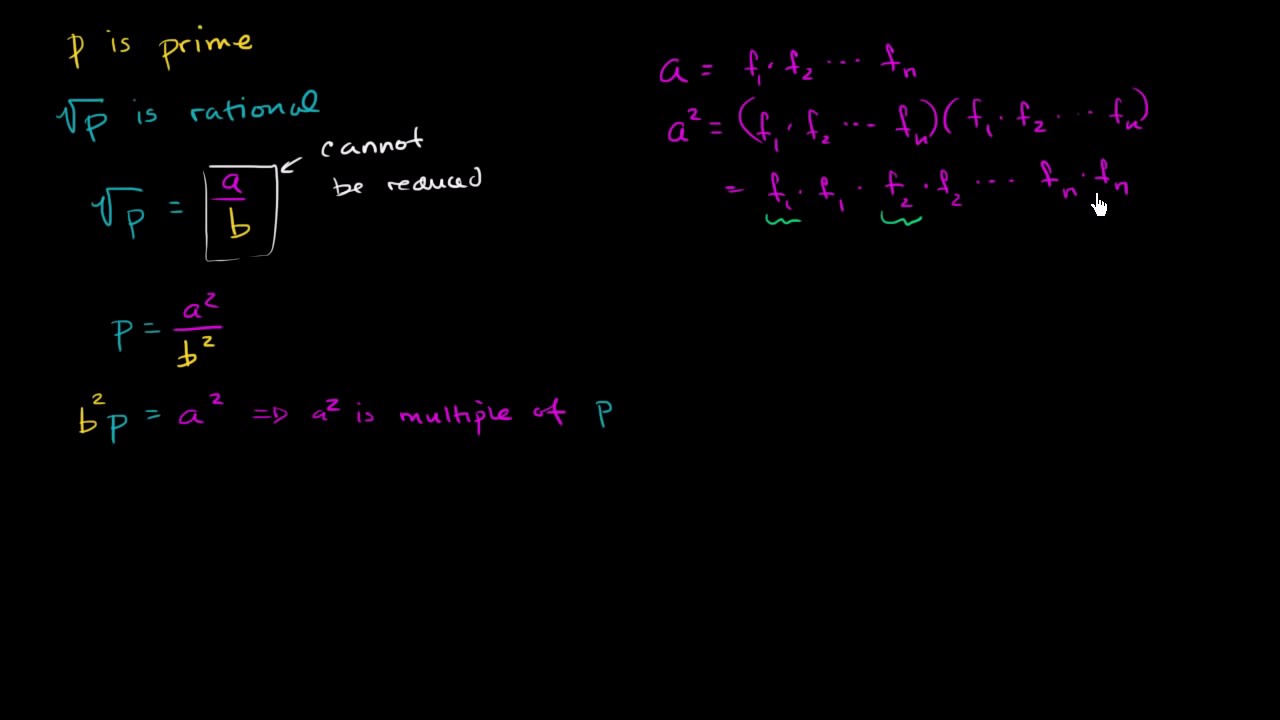 p is prime
√p is rational
√p = a/b
cannot
be reduced
p = a²/b²
b²p = a² ⇒ a² is multiple of p
a = f₁ · f₂ ··· fₙ
a² = (f₁ · f₂ ··· fₙ)(f₁ · f₂ ··· fₙ)
= f₁ · f₁ · f₂ · f₂ ··· fₙ · fₙ